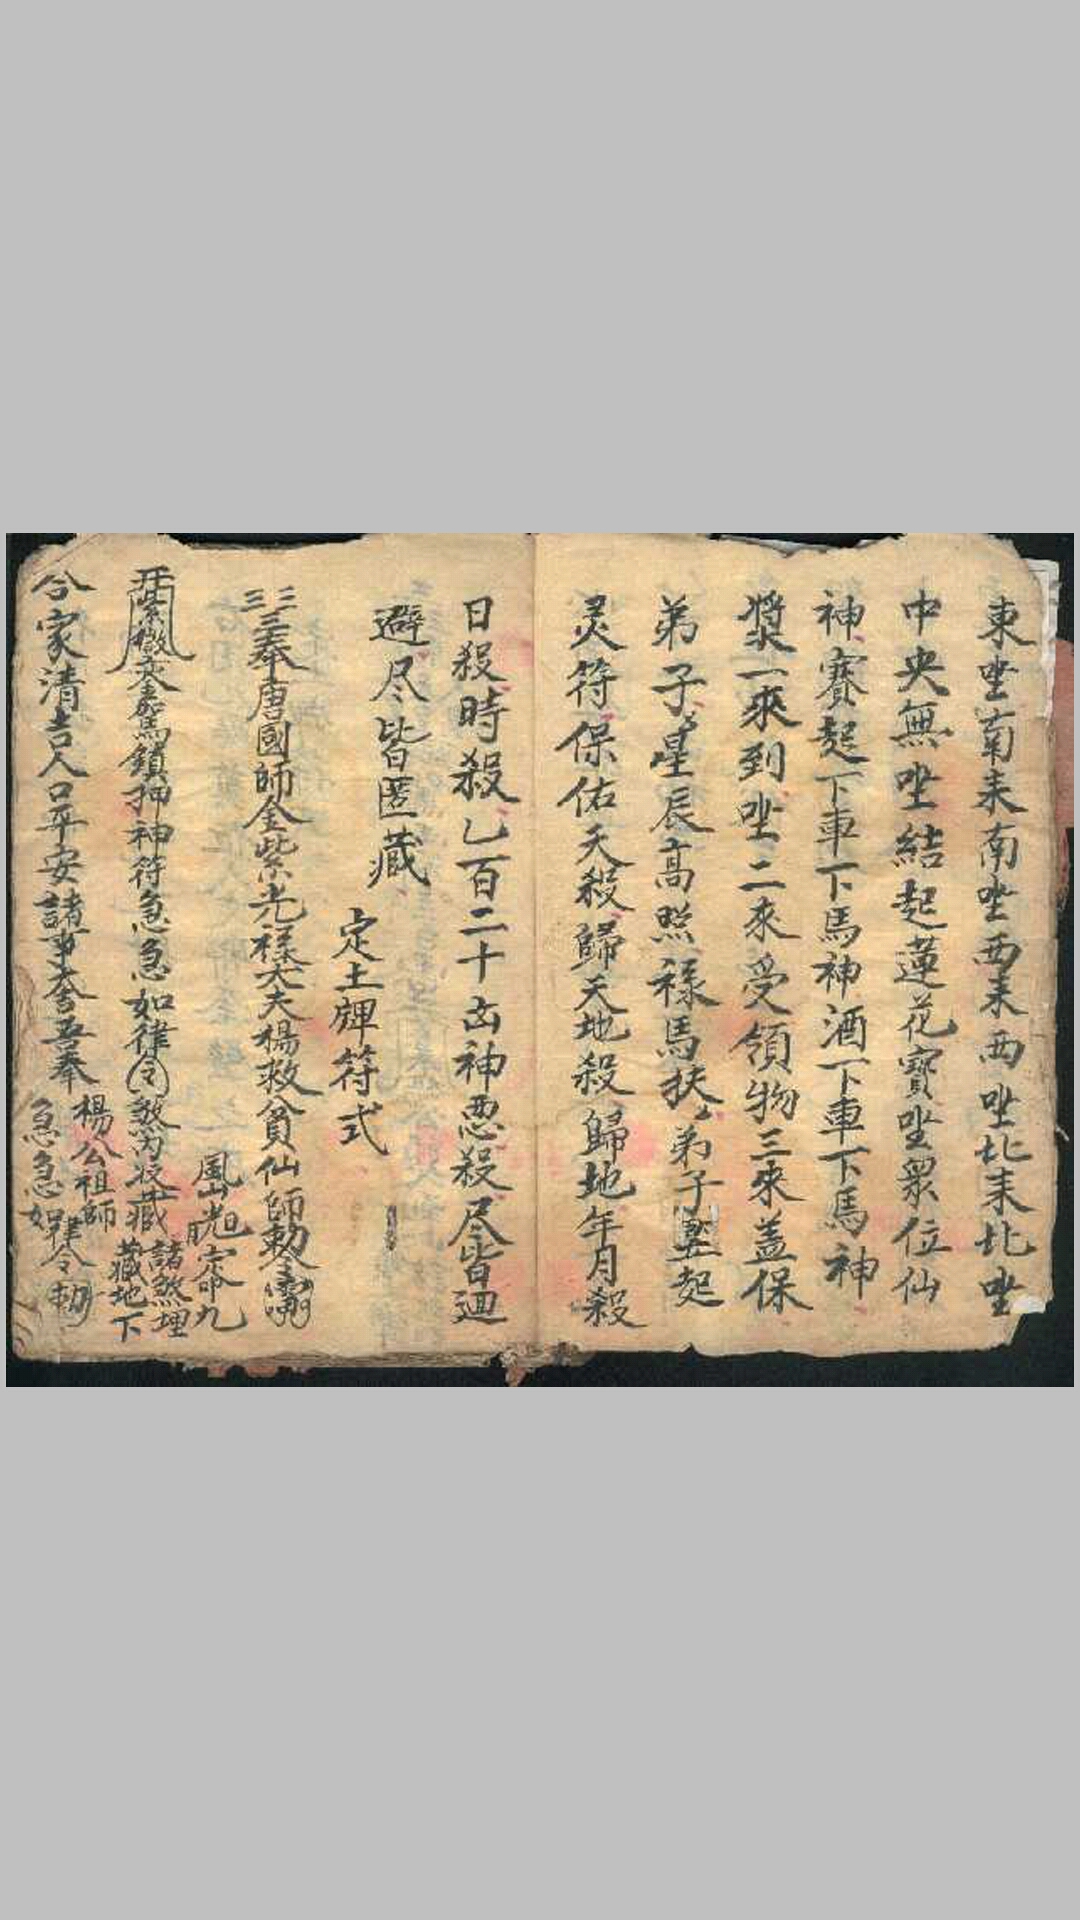 東坐南來南坐西來西坐北來北坐
中央無坐結起蓮花寶坐眾位仙
神賽起下車下馬神酒下車下馬神
漿一來到坐二來受領物三來蓋保
弟子星辰高照祿馬扶弟子起
灵符保佑天殺歸天地殺歸地年月殺
日殺時殺乙百二十凶神恶殺尽皆迴
避尽皆匿藏
定土牌符式
奉唐國師金紫光祿大夫楊救貧仙師勅令
紫微鑾駕鎮押神符急急如律令
諸煞埋
藏地下
合家清吉人口平安諸事大吉吾奉
楊公祖師
急急如律令勅